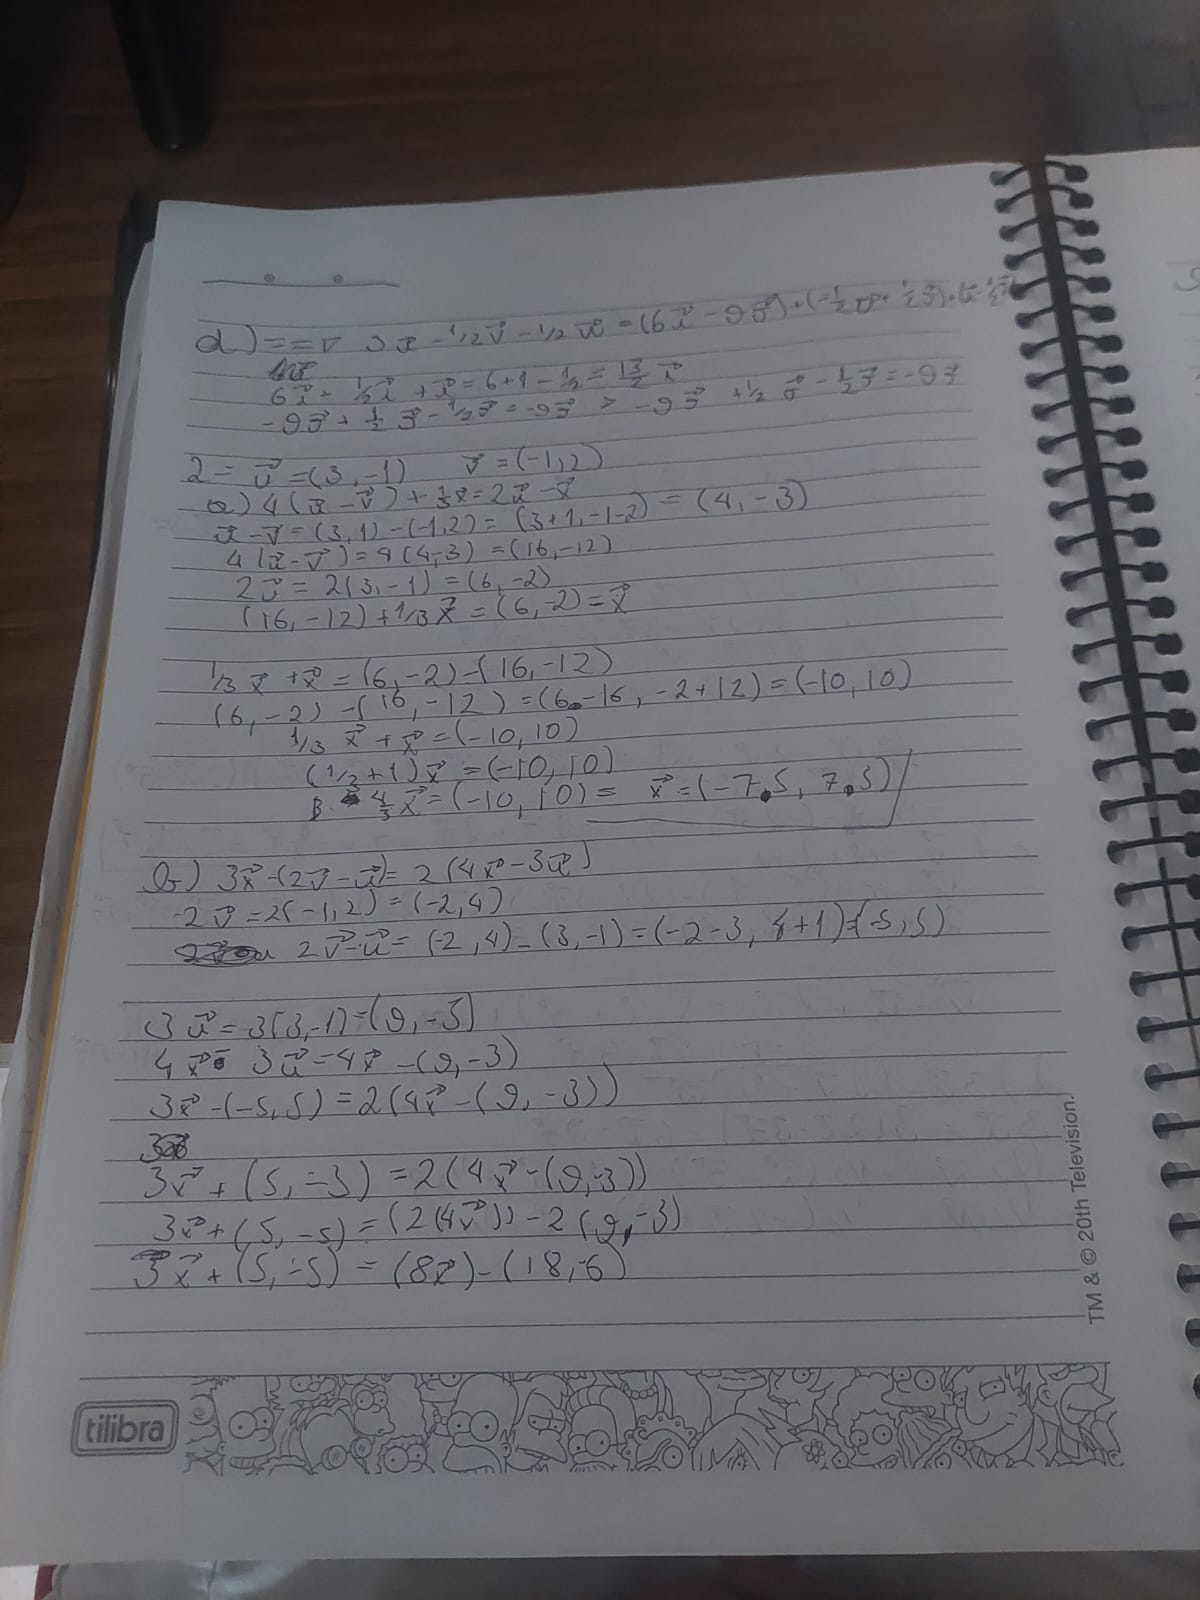 d) ==> 3x⃗ - 1/2v⃗ - 1/2 w⃗ = (6x⃗ - 9v⃗) + (-1/2
6x⃗ - 1/2x⃗ + x⃗ = 6+1 - 1/2 = 13/2 x⃗
-9v⃗ + 1/2 v⃗ - 1/2v⃗ = -9v⃗ > -9v⃗ + 1/2 v⃗ - 1/2v⃗ = -9v⃗
2 = u⃗ = (3, -1) v⃗ = (-1,2)
a) 4(u⃗ - v⃗) + 1/3x⃗ = 2u⃗ - x⃗
u⃗ - v⃗ = (3,1) - (-1,2) = (3+1, -1-2) = (4, -3)
4(u⃗ - v⃗) = 4(4,-3) = (16, -12)
2u⃗ = 2(3, -1) = (6, -2)
(16, -12) + 1/3 x⃗ = (6, -2) = x⃗
1/3 x⃗ + x⃗ = (6, -2) - (16, -12)
(6, -2) - (16, -12) = (6 - 16, -2+12) = (-10, 10)
1/3 x⃗ + x⃗ = (-10, 10)
(1/3 + 1)x⃗ = (-10, 10)
4/3 x⃗ = (-10, 10) = x⃗ = (-7.5, 7.5)
b) 3x⃗ - (2v⃗ - u⃗) = 2(4x⃗ - 3u⃗)
2v⃗ = 2(-1,2) = (-2,4)
2v⃗ - u⃗ = (-2,4) - (3,-1) = (-2-3, 4+1) = (-5,5)
3u⃗ = 3(3,-1) = (9,-3)
4x⃗ - 3u⃗ = 4x⃗ - (9,-3)
3x⃗ - (-5,5) = 2(4x⃗ - (9, -3))
3x⃗ + (5, -5) = 2(4x⃗ - (9,-3))
3x⃗ + (5, -5) = (2(4x⃗)) - 2(9,-3)
3x⃗ + (5, -5) = (8x⃗) - (18,-6)
TM & © 20th Television.
tilibra